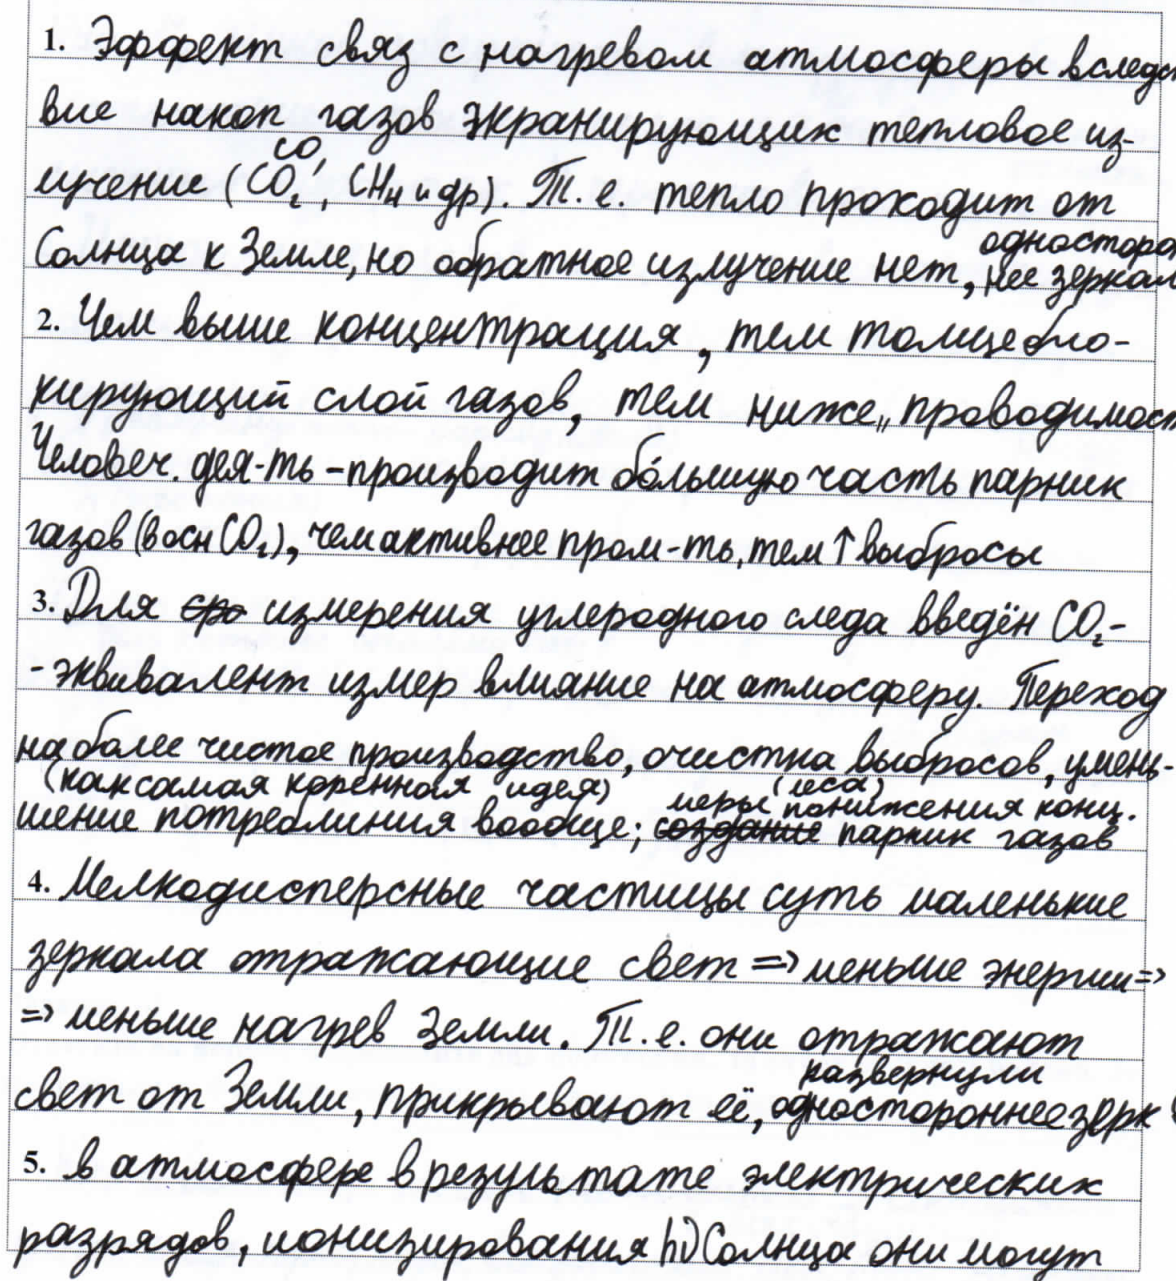 1. Эффект связ с нагревом атмосферы вследст
вие накоп газов экранирующих тепловое из-
CO,
лучение (CO₂, CH₄ и др). Т. е. тепло проходит от
односторон
Солнца к Земле, но обратное излучение нет, нее зеркал
2. Чем выше концентрация, тем толще бло-
кирующий слой газов, тем ниже „проводимост
Человеч. дея-ть – производит бо́льшую часть парник
газов (в осн CO₂), чем активнее пром-ть, тем ↑ выбросы
3. Для сро измерения углеродного следа введён CO₂-
-эквивалент измер влияние на атмосферу. Переход
на более чистое производство, очистка выбросов, умень-
(как самая коренная идея) меры (леса) понижения конц.
шение потребления вообще; создание парник газов
4. Мелкодисперсные частицы суть маленькие
зеркала отражающие свет => меньше энергии =>
=> меньше нагрев Земли. Т. е. они отражают
развернули
свет от Земли, прикрывают её, одностороннее зерк
5. в атмосфере в результате электрических
разрядов, ионизирования hν Солнца они могут